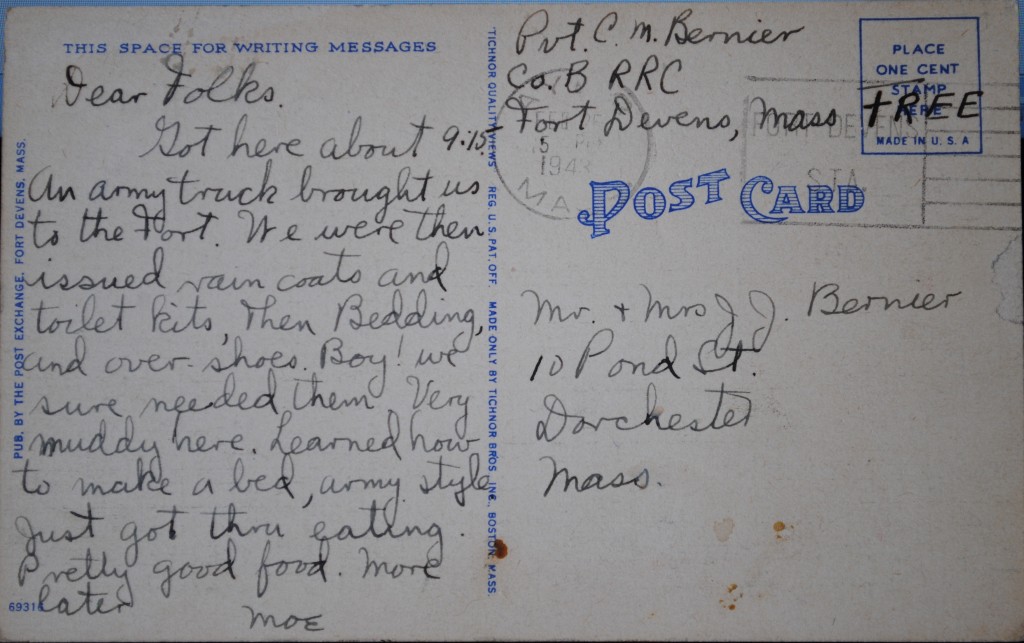 THIS SPACE FOR WRITING MESSAGES
Dear Folks.
Got here about 9:15.
An army truck brought us
to the Fort. We were then
issued rain coats and
toilet kits, Then Bedding,
and over-shoes. Boy! we
sure needed them. Very
muddy here. Learned how
to make a bed, army style
Just got thru eating.
Pretty good food. More
later
Moe
69316
PUB. BY THE POST EXCHANGE, FORT DEVENS, MASS.
TICHNOR QUALITY VIEWS REG. U.S. PAT. OFF. MADE ONLY BY TICHNOR BROS. INC., BOSTON, MASS.
Pvt. C. M. Bernier
Co. B RRC
Fort Devens, Mass
FREE
PLACE
ONE CENT
STAMP
HERE
MADE IN U.S.A
5 PM
1943
MA
FORT DEVENS
STA.
POST CARD
Mr. + Mrs J. J. Bernier
10 Pond St.
Dorchester
Mass.